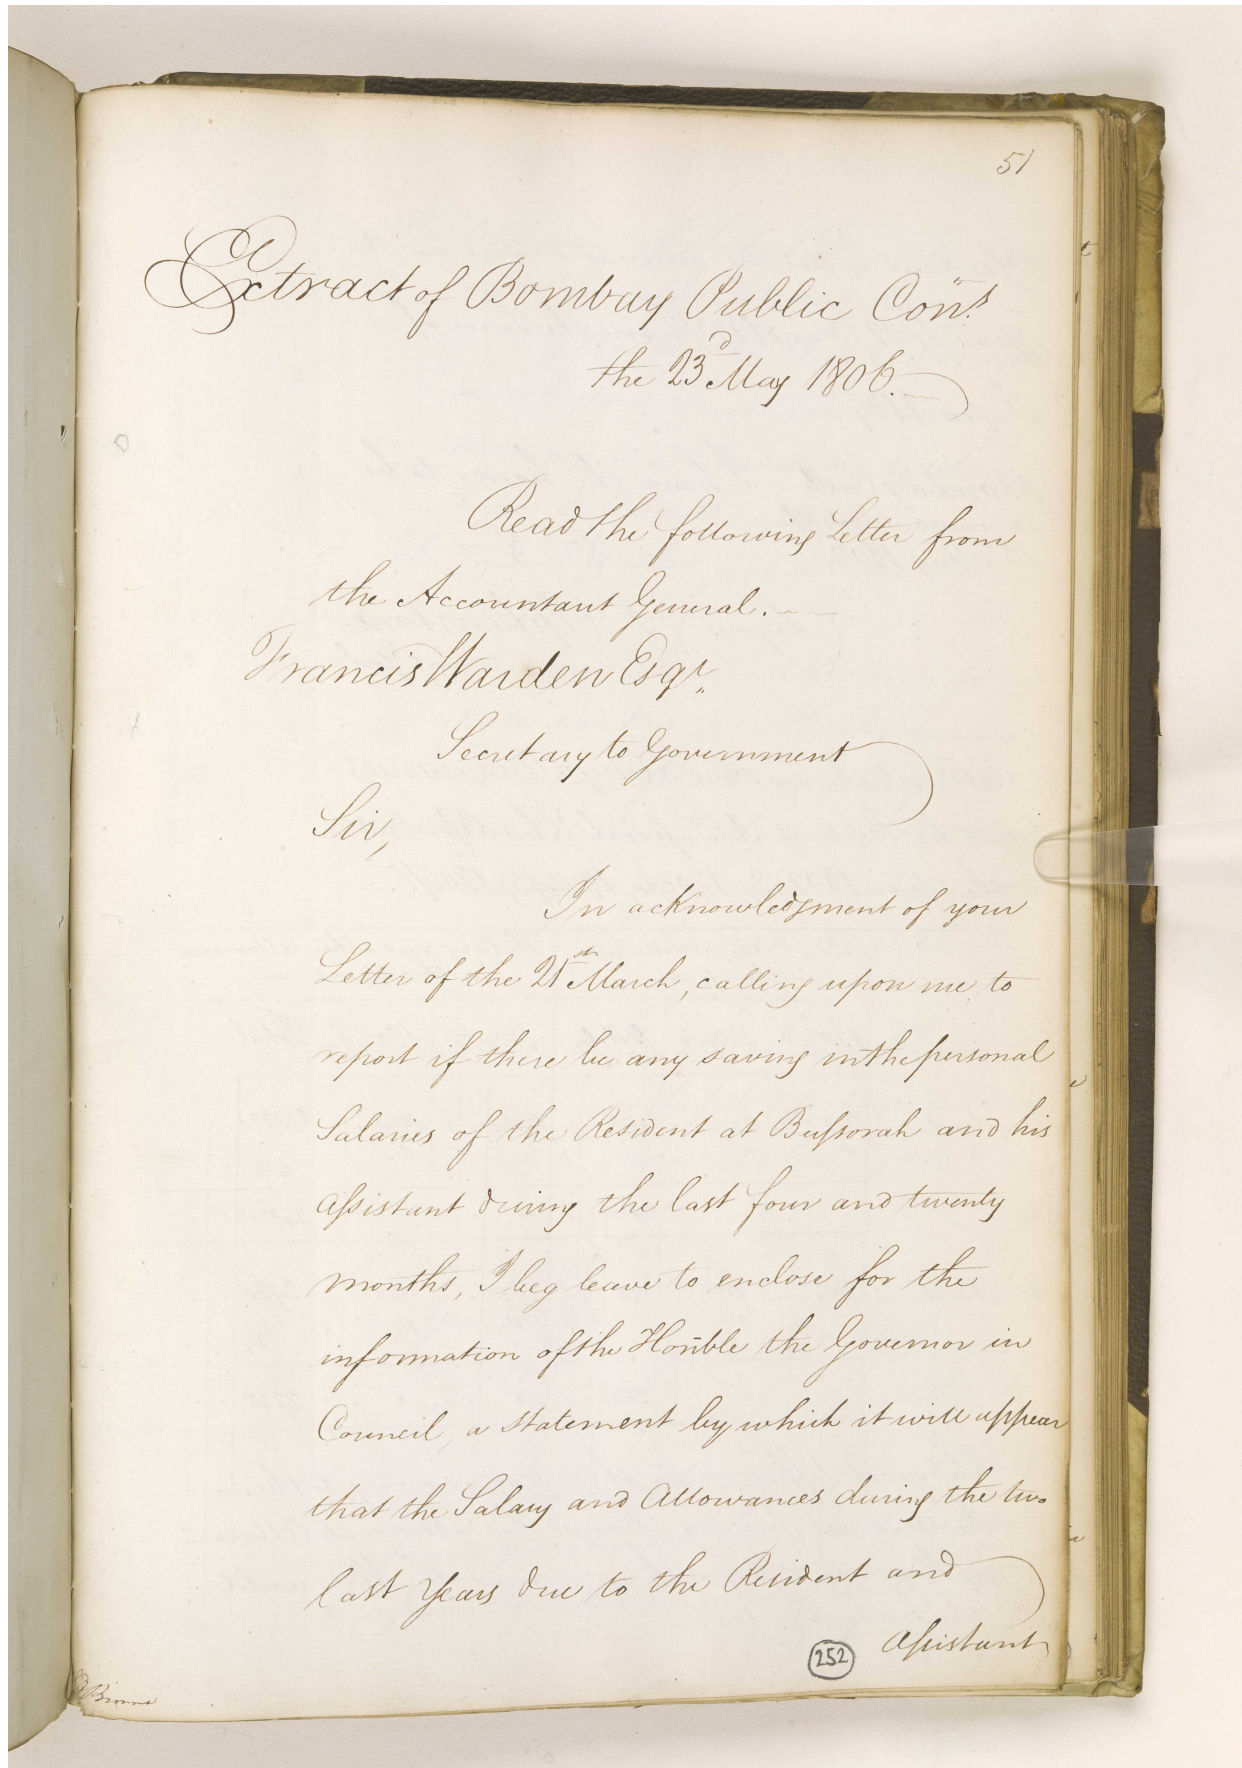 51
Extract of Bombay Public Con̄s.
the 23d May 1806.
Read the following Letter from
the Accountant General.
Francis Warden Esqr.
Secretary to Government
Sir,
In acknowledgment of your
Letter of the 21st March, calling upon me to
report if there be any saving in the personal
Salaries of the Resident at Bufsorah and his
Afsistant during the last four and twenty
months, I beg leave to enclose for the
information of the Hon̄ble the Governor in
Council, a Statement by which it will appear
that the Salary and Allowances during the two
last Years due to the Resident and
Afsistant
252